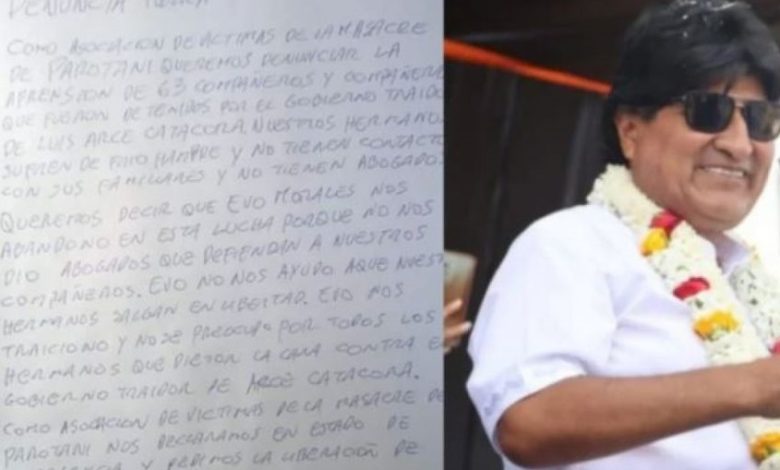 DENUNCIA
COMO ASOCIACION DE VICTIMAS DE LA MASACRE
DE PAROTANI QUEREMOS DENUNCIAR LA
APRENSION DE 63 COMPAÑEROS Y COMPAÑERA
QUE FUERON DETENIDOS POR EL GOBIERNO TRAIDO
DE LUIS ARCE CATACORA. NUESTROS HERMANO
SUFREN DE FRIO HAMBRE Y NO TIENEN CONTACTO
CON SUS FAMILIARES Y NO TIENEN ABOGADOS
QUEREMOS DECIR QUE EVO MORALES NOS
ABANDONO EN ESTA LUCHA PORQUE NO NOS
DIO ABOGADOS QUE DEFIENDAN A NUESTROS
COMPAÑEROS. EVO NO NOS AYUDO AQUE NUEST
HERMANOS SALGAN EN LIBERTAD. EVO NOS
TRAICIONO Y NO SE PREOCUPO POR TODOS LOS
HERMANOS QUE DIERON LA CARA CONTRA E
GOBIERNO TRAIDOR DE ARCE CATACORA.
COMO ASOCIACION DE VICTIMAS DE LA MASACRE DE
PAROTANI NOS DECLARAMOS EN ESTADO DE
Y PEDIMOS LA LIBERACIÓN DE